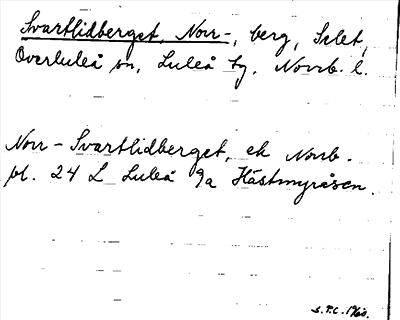 Svartlidberget, Norr-, berg, Selet,
Överluleå sn, Luleå tg, Norrb. l.
Norr-Svartlidberget, ek Norrb.
bl. 24 L Luleå 9a Hästmyråsen.
S.P.C. 1960.